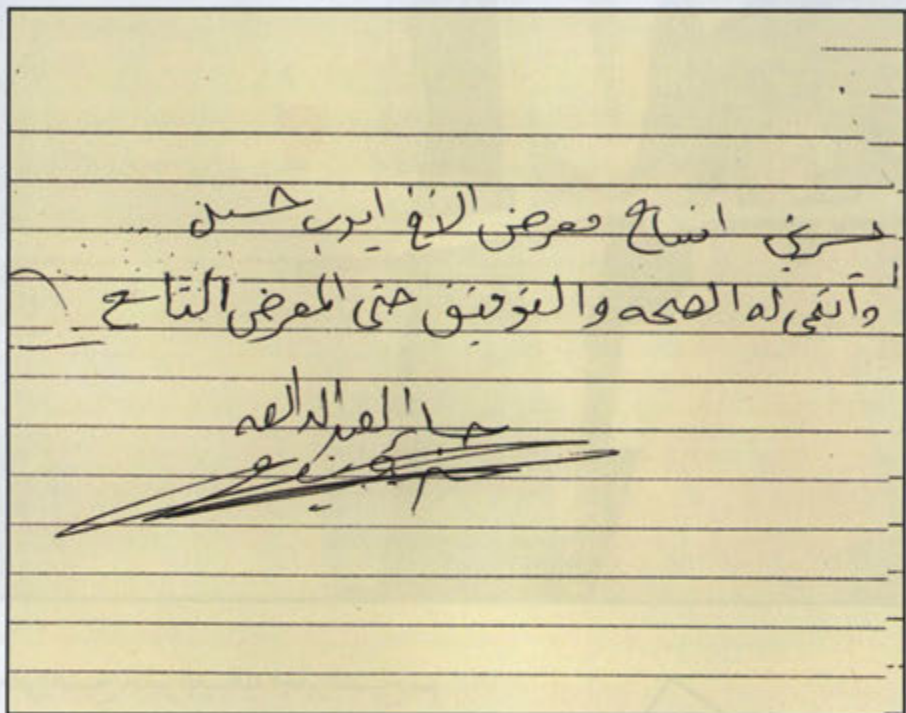 يسرني افتتاح معرض الاخ ايوب حسين
وأتمنى له الصحه والتوفيق حتى المعرض التاسع
جابر العبدالله